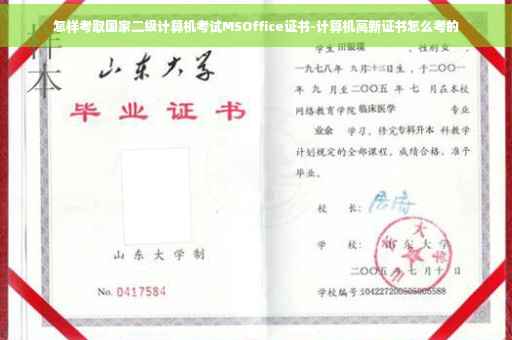 怎样考取国家二级计算机考试MSOffice证书-计算机高新证书怎么考的
样本
山东大学
毕业证书
山东大学制
No. 0417584
学生 田淑瑛 ，性别女，
一九七八年 九月十二日生，于二〇〇一
年 九 月至二〇〇五 年 七 月在本校
网络教育学院 临床医学 专业
业余 学习，修完专科升本 科教学
计划规定的全部课程，成绩合格，准予
毕业。
校 长：
学 校： 山东大学
二〇〇五年七月十日
学校编号:104227200505005588